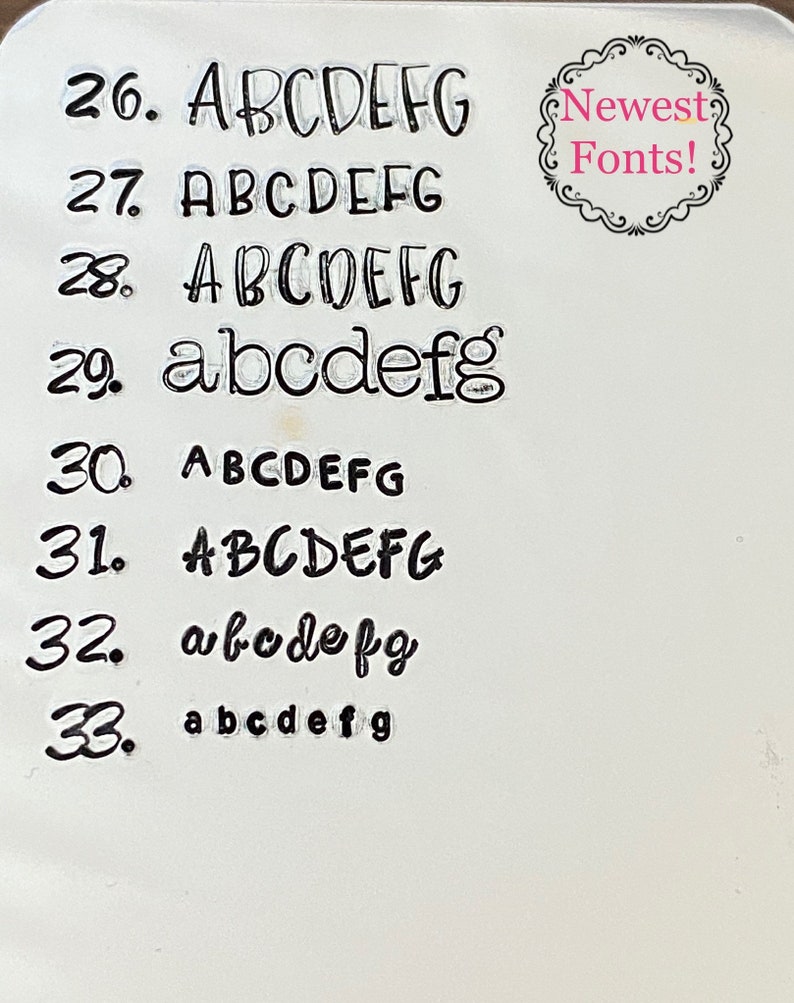 26. ABCDEFG
27. ABCDEFG
28. ABCDEFG
29. abcdefg
30. ABCDEFG
31. ABCDEFG
32. abcdefg
33. abcdefg
Newest
Fonts!